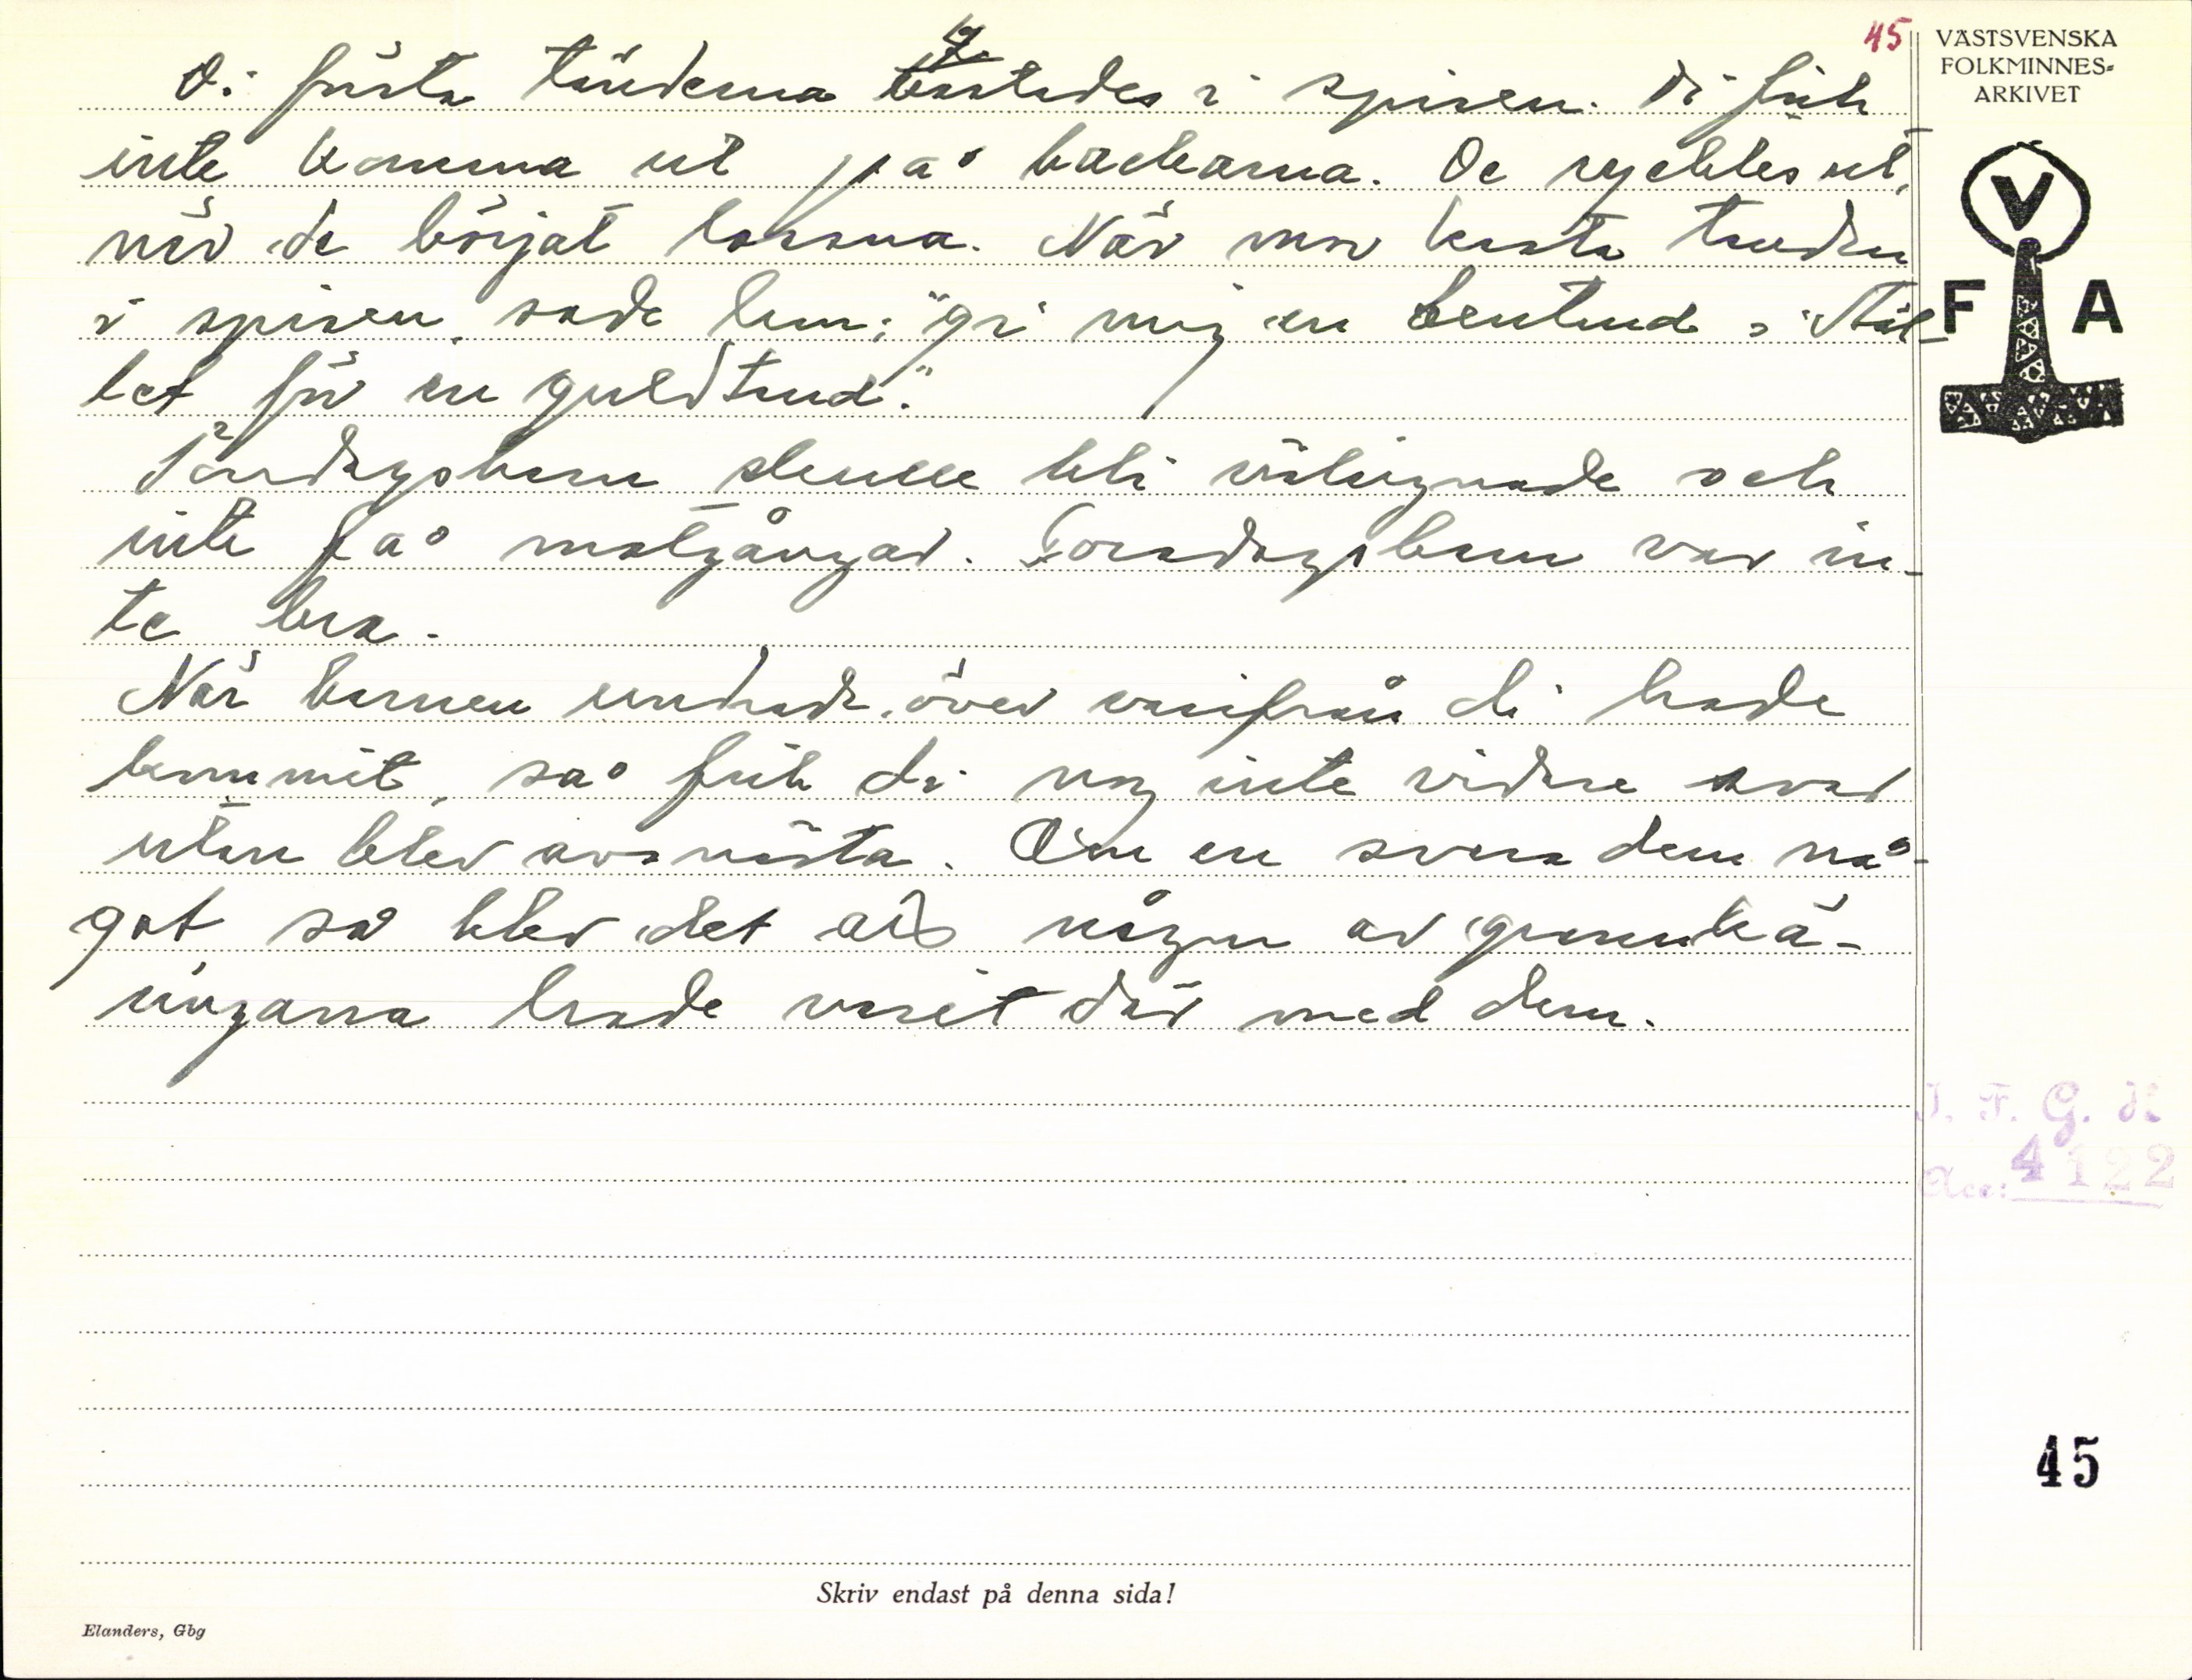 45
VÄSTSVENSKA
FOLKMINNES-
ARKIVET
Di första tänderna kastades i spisen. Di fick
inte komma ut på backarna. De rycktes ut,
när de börjat lossna. När mor kasta tanden
i spisen, sade hon: "gi mig en bentand i stäl-
let för en guldtand."
Söndagsbarn skulle bli välsignade och
inte få motgångar. Torsdagsbarn var in-
te bra.
När barnen undrade över varifrån di hade
kommit, så fick di nog inte vidare svar
utan blev avsnästa. Om en svara dem nå-
got så blev det att någon av grannkä-
ringarna hade varit där med dem.
V
F A
I. F. G. H
Acc: 4122
45
Skriv endast på denna sida!
Elanders, Gbg